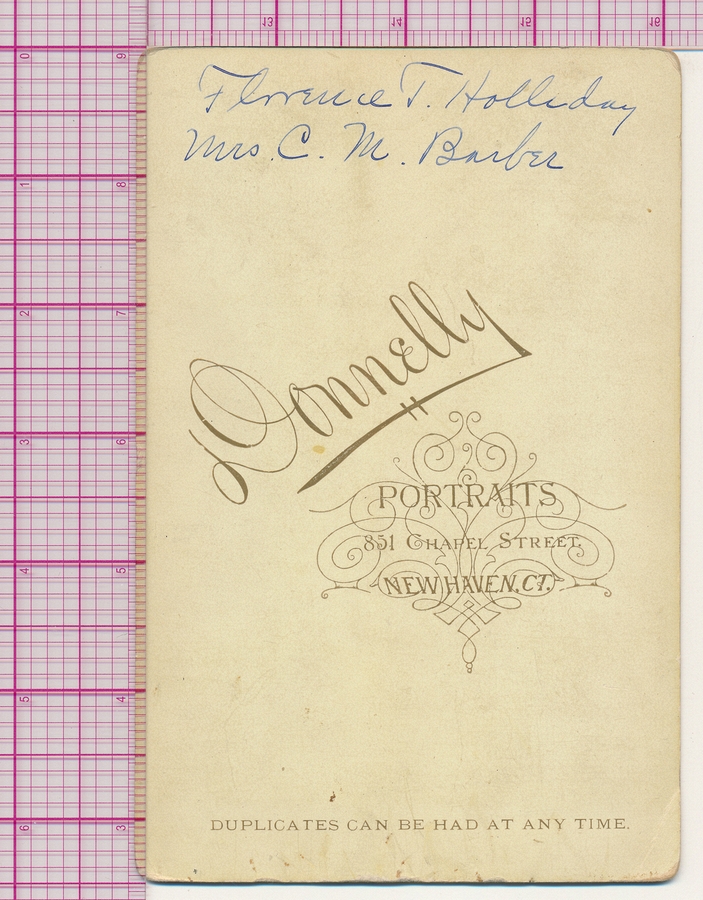 Florence T. Holliday
Mrs. C. M. Barber
Donnelly
PORTRAITS
851 CHAPEL STREET,
NEW HAVEN, CT.
DUPLICATES CAN BE HAD AT ANY TIME.
13 14 15 16
0 1 2 3 4 5 6
9 8 7 6 5 4 3